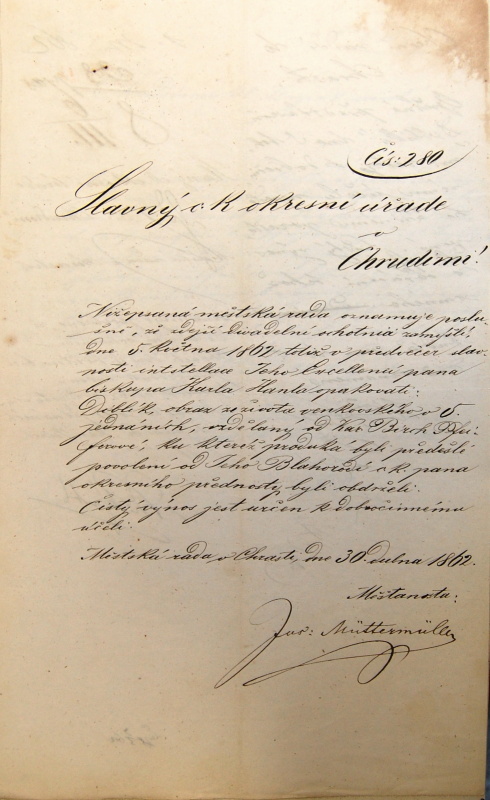 Čís: 280
Slavný c. k. okresní úřade
v
Chrudimi!
Nížepsaná městská rada oznamuje poslu-
šně, že zdejší divadelní ochotníci zamýšlí,
dne 5. května 1862 totiž v předvečer slav-
nosti intstallace Jeho Excellencí pana
biskupa Karla Hanla opakovati.
Diblík, obraz ze života venkovského v 5.
jednáních, vzdělaný od Kar. Birch Pfei-
ferové, ku kteréž produkci byli předešlé
povolení od Jeho Blahorodí c. k. pana
okresního přednosty byli obdrželi.
Čistý výnos jest určen k dobročinnému
účeli.
Městská rada v Chrasti, dne 30. dubna 1862.
Měšťanosta:
Jos: Müttermüller